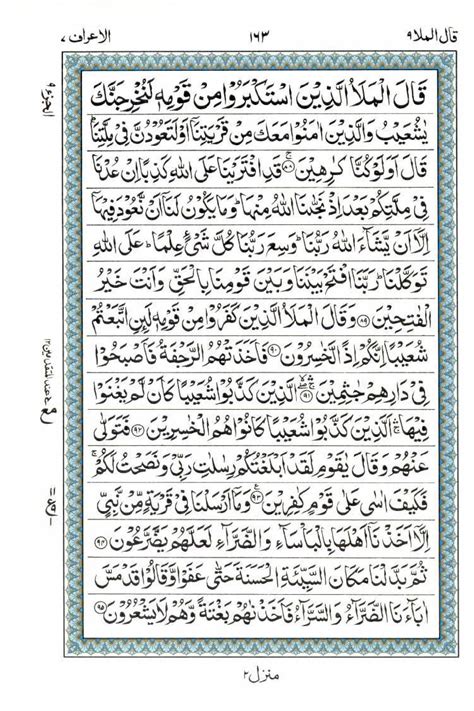 قال الملا ۹ ۱۶۳ الاعراف ۷
قَالَ الْمَلَاُ الَّذِيْنَ اسْتَكْبَرُوْا مِنْ قَوْمِهٖ لَنُخْرِجَنَّكَ
يٰشُعَيْبُ وَالَّذِيْنَ اٰمَنُوْا مَعَكَ مِنْ قَرْيَتِنَاۤ اَوْ لَتَعُوْدُنَّ فِيْ مِلَّتِنَا
قَالَ اَوَلَوْ كُنَّا كٰرِهِيْنَ ۸۸ قَدِ افْتَرَيْنَا عَلَى اللّٰهِ كَذِبًا اِنْ عُدْنَا
فِيْ مِلَّتِكُمْ بَعْدَ اِذْ نَجّٰىنَا اللّٰهُ مِنْهَا ؕ وَمَا يَكُوْنُ لَنَاۤ اَنْ نَّعُوْدَ فِيْهَاۤ
اِلَّاۤ اَنْ يَّشَآءَ اللّٰهُ رَبُّنَا ؕ وَسِعَ رَبُّنَا كُلَّ شَيْءٍ عِلْمًا ؕ عَلَى اللّٰهِ
تَوَكَّلْنَا ؕ رَبَّنَا افْتَحْ بَيْنَنَا وَبَيْنَ قَوْمِنَا بِالْحَقِّ وَاَنْتَ خَيْرُ
الْفٰتِحِيْنَ ۸۹ وَقَالَ الْمَلَاُ الَّذِيْنَ كَفَرُوْا مِنْ قَوْمِهٖ لَئِنِ اتَّبَعْتُمْ
شُعَيْبًا اِنَّكُمْ اِذًا لَّخٰسِرُوْنَ ۹۰ فَاَخَذَتْهُمُ الرَّجْفَةُ فَاَصْبَحُوْا
فِيْ دَارِهِمْ جٰثِمِيْنَ ۹۱ الَّذِيْنَ كَذَّبُوْا شُعَيْبًا كَاَنْ لَّمْ يَغْنَوْا
فِيْهَا ۚ اَلَّذِيْنَ كَذَّبُوْا شُعَيْبًا كَانُوْا هُمُ الْخٰسِرِيْنَ ۹۲ فَتَوَلّٰى
عَنْهُمْ وَقَالَ يٰقَوْمِ لَقَدْ اَبْلَغْتُكُمْ رِسٰلٰتِ رَبِّيْ وَنَصَحْتُ لَكُمْ ۚ
فَكَيْفَ اٰسٰى عَلٰى قَوْمٍ كٰفِرِيْنَ ۹۳ وَمَاۤ اَرْسَلْنَا فِيْ قَرْيَةٍ مِّنْ نَّبِيٍّ
اِلَّاۤ اَخَذْنَاۤ اَهْلَهَا بِالْبَاْسَآءِ وَالضَّرَّآءِ لَعَلَّهُمْ يَضَّرَّعُوْنَ ۹۴
ثُمَّ بَدَّلْنَا مَكَانَ السَّيِّئَةِ الْحَسَنَةَ حَتّٰى عَفَوْا وَّقَالُوْا قَدْ مَسَّ
اٰبَآءَنَا الضَّرَّآءُ وَالسَّرَّآءُ فَاَخَذْنٰهُمْ بَغْتَةً وَّهُمْ لَا يَشْعُرُوْنَ ۹۵
منزل ۲
الجزء ۹